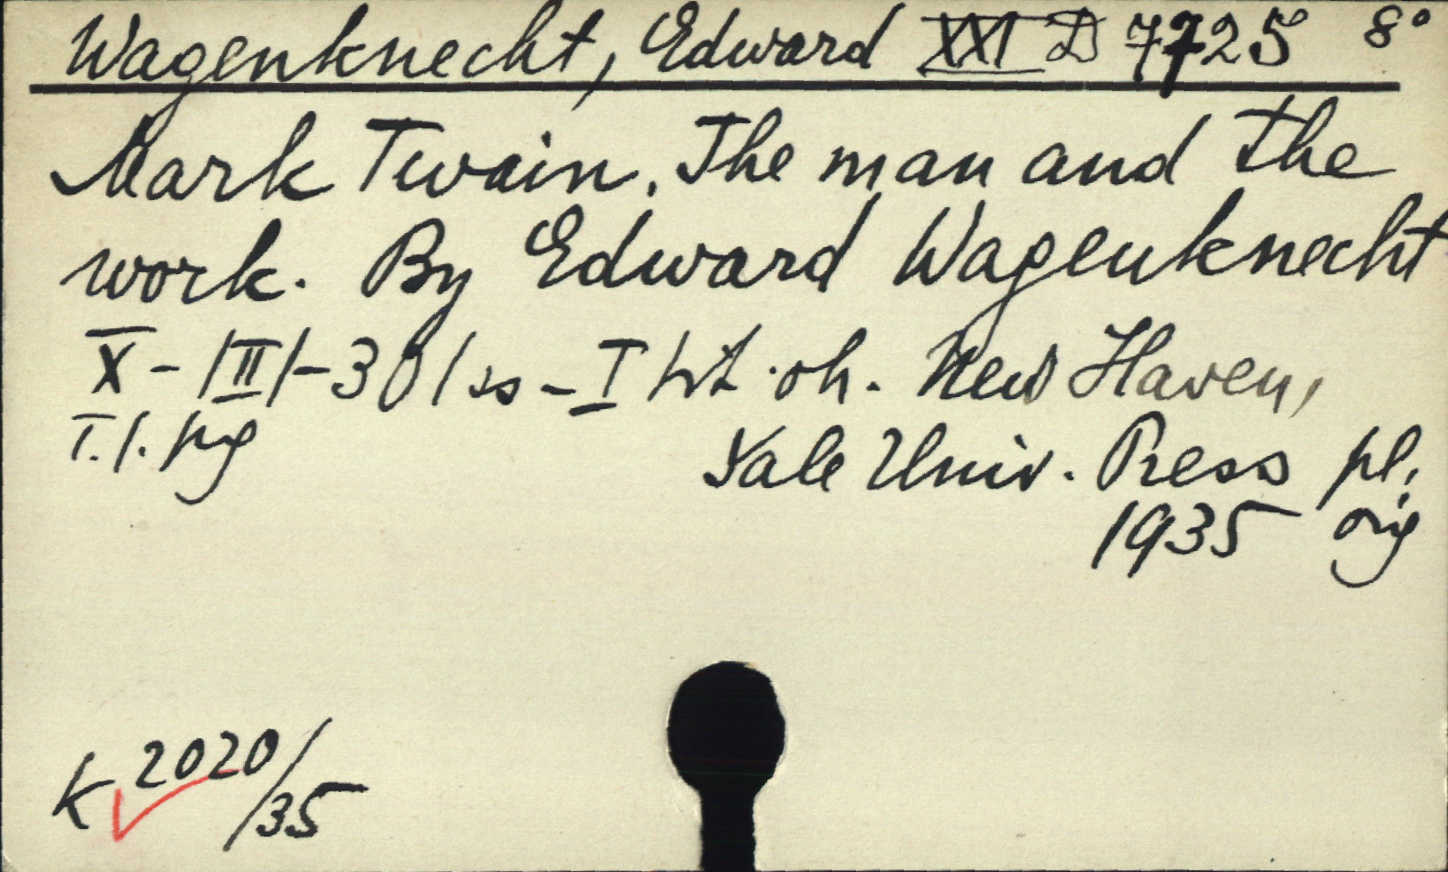 Wagenknecht, Edward XXI D 7725 8°
Mark Twain. The man and the
work. By Edward Wagenknecht
X - |III| - 301 ss - I tit. oh. New Haven,
T.l. pg
Yale Univ. Press pl.
1935 orig
K 2020/35